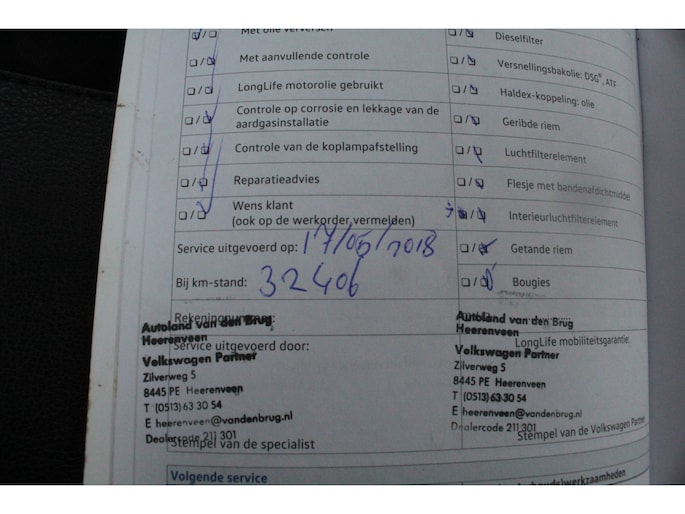 Met olie verversen
Met aanvullende controle
LongLife motorolie gebruikt
Controle op corrosie en lekkage van de
aardgasinstallatie
Controle van de koplampafstelling
Reparatieadvies
Wens klant
(ook op de werkorder vermelden)
Service uitgevoerd op: 17/05/2018
Bij km-stand: 32406
Rekeningnummer:
Autoland van den Brug
Heerenveen
Service uitgevoerd door:
Volkswagen Partner
Zilverweg 5
8445 PE Heerenveen
T (0513) 63 30 54
E heerenveen@vandenbrug.nl
Dealercode 211 301
Stempel van de specialist
Volgende service
Dieselfilter
Versnellingsbakolie: DSG®, ATF
Haldex-koppeling: olie
Geribde riem
Luchtfilterelement
Flesje met bandenafdichtmiddel
Interieurluchtfilterelement
Getande riem
Bougies
Autoland van den Brug
Heerenveen
LongLife mobiliteitsgarantie:
Volkswagen Partner
Zilverweg 5
8445 PE Heerenveen
T (0513) 63 30 54
E heerenveen@vandenbrug.nl
Dealercode 211 301
Stempel van de Volkswagen Partner